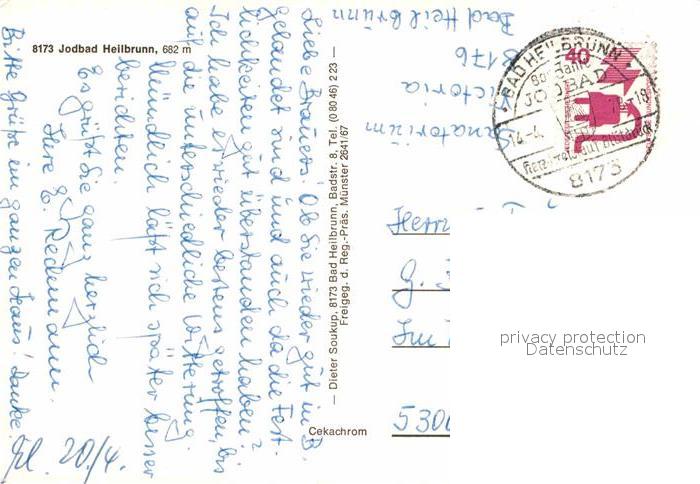 8173 Jodbad Heilbrunn, 682 m
Liebe Brauers! Ob Sie wieder gut in B.
gelandet sind und auch da die Fest-
lichkeiten gut überstanden haben?
Ich habe es wieder bestens getroffen, bis
auf die unterschiedliche Witterung.
Mündlich läßt sich später besser
berichten.
Es grüßt Sie ganz herzlich
Ihre E. Redemann.
Bitte Grüße im ganzen Haus! Danke.
Erl. 20/4.
— Dieter Soukup, 8173 Bad Heilbrunn, Badstr. 8, Tel. (0 80 46) 2 23 —
Freigeg. d. Reg.-Präs. Münster 2641/67
Cekachrom
Sanatorium
8176
Bad Heilbrunn
40
BAD HEILBRUNN
JODBAD
14.-4.
-18
8173
Herrn
G.
Im
5300
privacy protection
Datenschutz